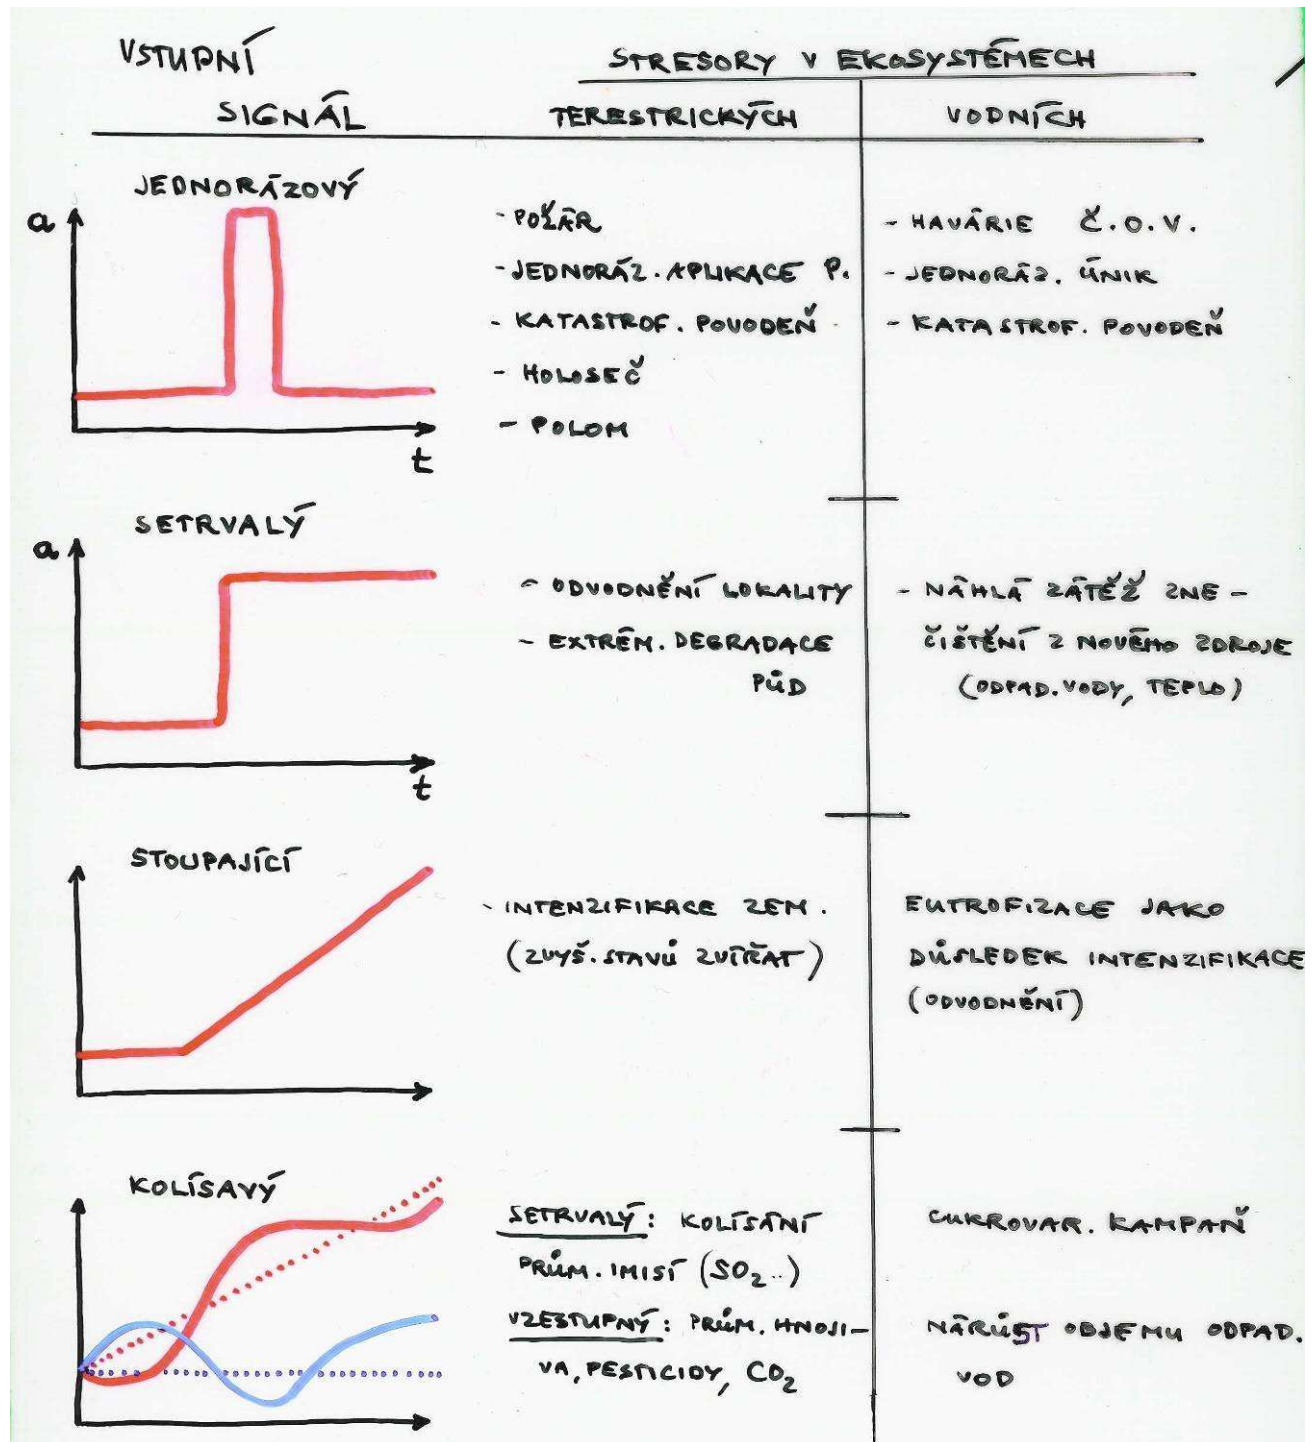 VSTUPNÍ
SIGNÁL
STRESORY V EKOSYSTÉMECH
TERESTRICKÝCH
VODNÍCH
JEDNORÁZOVÝ
a
t
- POŽÁR
- JEDNORÁZ. APLIKACE P.
- KATASTROF. POVODEŇ
- HOLOSEČ
- POLOM
- HAVÁRIE Č.O.V.
- JEDNORÁZ. ÚNIK
- KATASTROF. POVODEŇ
SETRVALÝ
a
t
- ODVODNĚNÍ LOKALITY
- EXTRÉM. DEGRADACE
PŮD
- NÁHLÁ ZÁTĚŽ ZNE-
ČIŠTĚNÍ Z NOVÉHO ZDROJE
(ODPAD. VODY, TEPLO)
STOUPAJÍCÍ
- INTENZIFIKACE ZEM.
(ZVYŠ. STAVŮ ZVÍŘAT)
EUTROFIZACE JAKO
DŮSLEDEK INTENZIFIKACE
(ODVODNĚNÍ)
KOLÍSAVÝ
SETRVALÝ: KOLÍSÁNÍ
PRŮM. IMISÍ (SO2..)
VZESTUPNÝ: PRŮM. HNOJI-
VA, PESTICIDY, CO2
CUKROVAR. KAMPAŇ
NÁRŮST OBJEMU ODPAD.
VOD